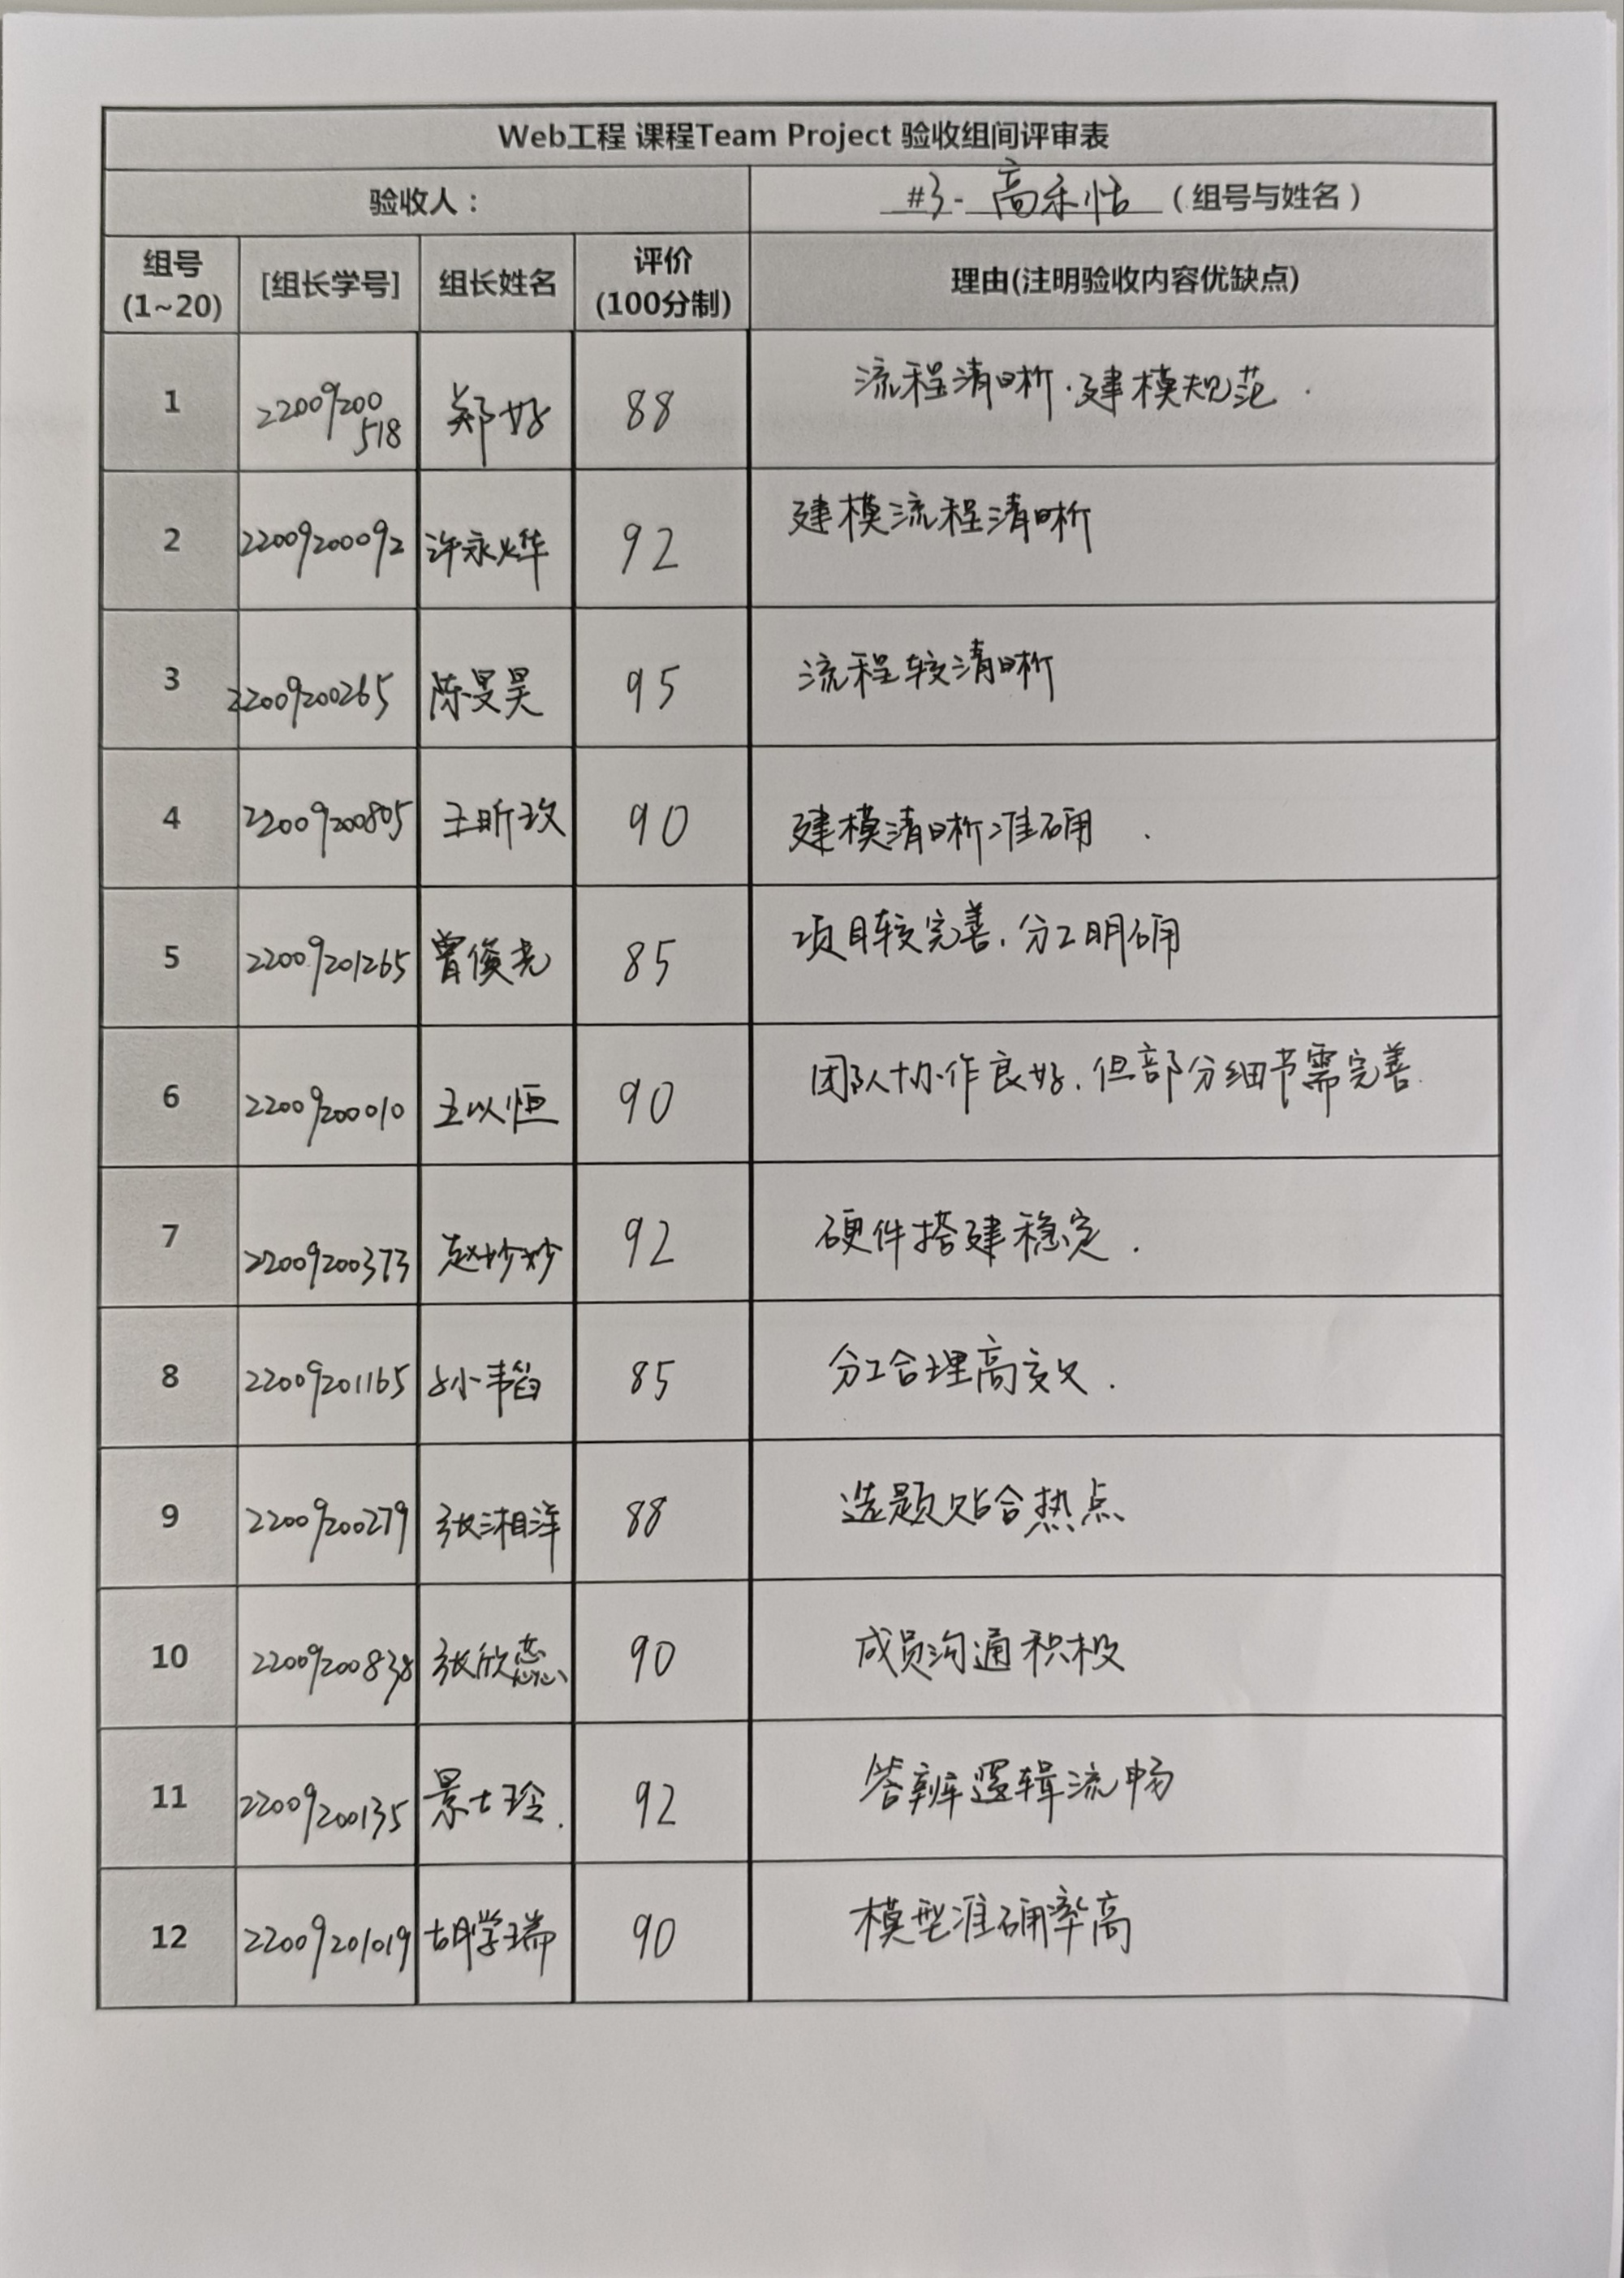 Web工程 课程Team Project 验收组间评审表
验收人： #3- 高禾恬 （组号与姓名）
组号(1~20) [组长学号] 组长姓名 评价(100分制) 理由(注明验收内容优缺点)
1 22009200518 郑好 88 流程清晰.建模规范.
2 22009200092 许永烨 92 建模流程清晰
3 22009200265 陈旻昊 95 流程较清晰
4 22009200805 王昕玫 90 建模清晰准确.
5 22009201265 曾俊尧 85 项目较完善.分工明确
6 22009200010 王以恒 90 团队协作良好.但部分细节需完善.
7 22009200373 赵妙妙 92 硬件搭建稳定.
8 22009201165 孙韦韬 85 分工合理高效.
9 22009200279 张湘洋 88 选题贴合热点
10 22009200838 张欣蕊 90 成员沟通积极
11 22009200135 景士玲. 92 答辩逻辑流畅
12 22009201019 胡学瑞 90 模型准确率高